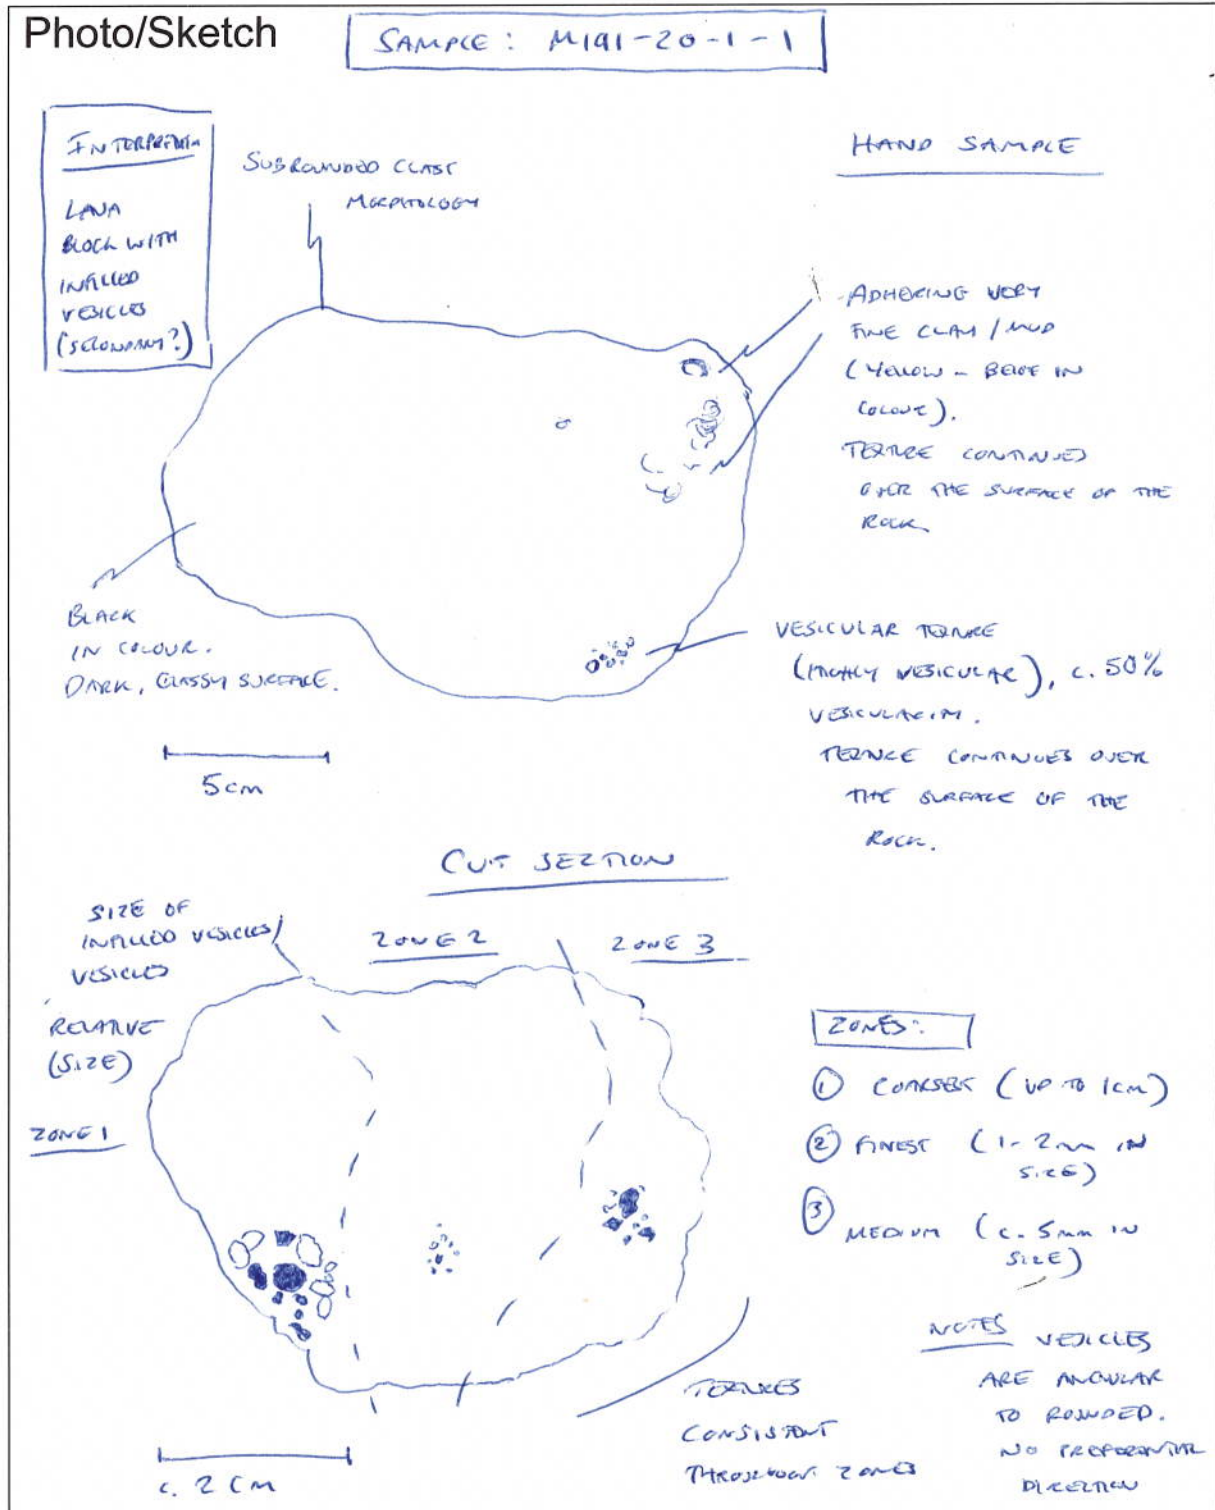 Photo/Sketch
SAMPLE: M191-20-1-1
INTERPRETATION
LAVA
BLOCK WITH
INFILLED
VESICLES
(SECONDARY?)
SUBROUNDED CLAST
MORPHOLOGY
HAND SAMPLE
ADHERING VERY
FINE CLAY / MUD
(YELLOW - BEIGE IN
COLOUR).
TEXTURE CONTINUES
OVER THE SURFACE OF THE
ROCK.
BLACK
IN COLOUR.
DARK, GLASSY SURFACE.
5cm
VESICULAR TEXTURE
(HIGHLY VESICULAR), c. 50%
VESICULARITY.
TEXTURE CONTINUES OVER
THE SURFACE OF THE
ROCK.
CUT SECTION
SIZE OF
INFILLED VESICLES/
VESICLES
RELATIVE
(SIZE)
ZONE 1
ZONE 2
ZONE 3
ZONES:
① COARSEST (UP TO 1cm)
② FINEST (1-2mm IN
SIZE)
③ MEDIUM (c. 5mm IN
SIZE)
NOTES VESICLES
ARE ANGULAR
TO ROUNDED.
NO PREFERENTIAL
DIRECTION
TEXTURES
CONSISTENT
THROUGHOUT ZONES
c. 2 cm